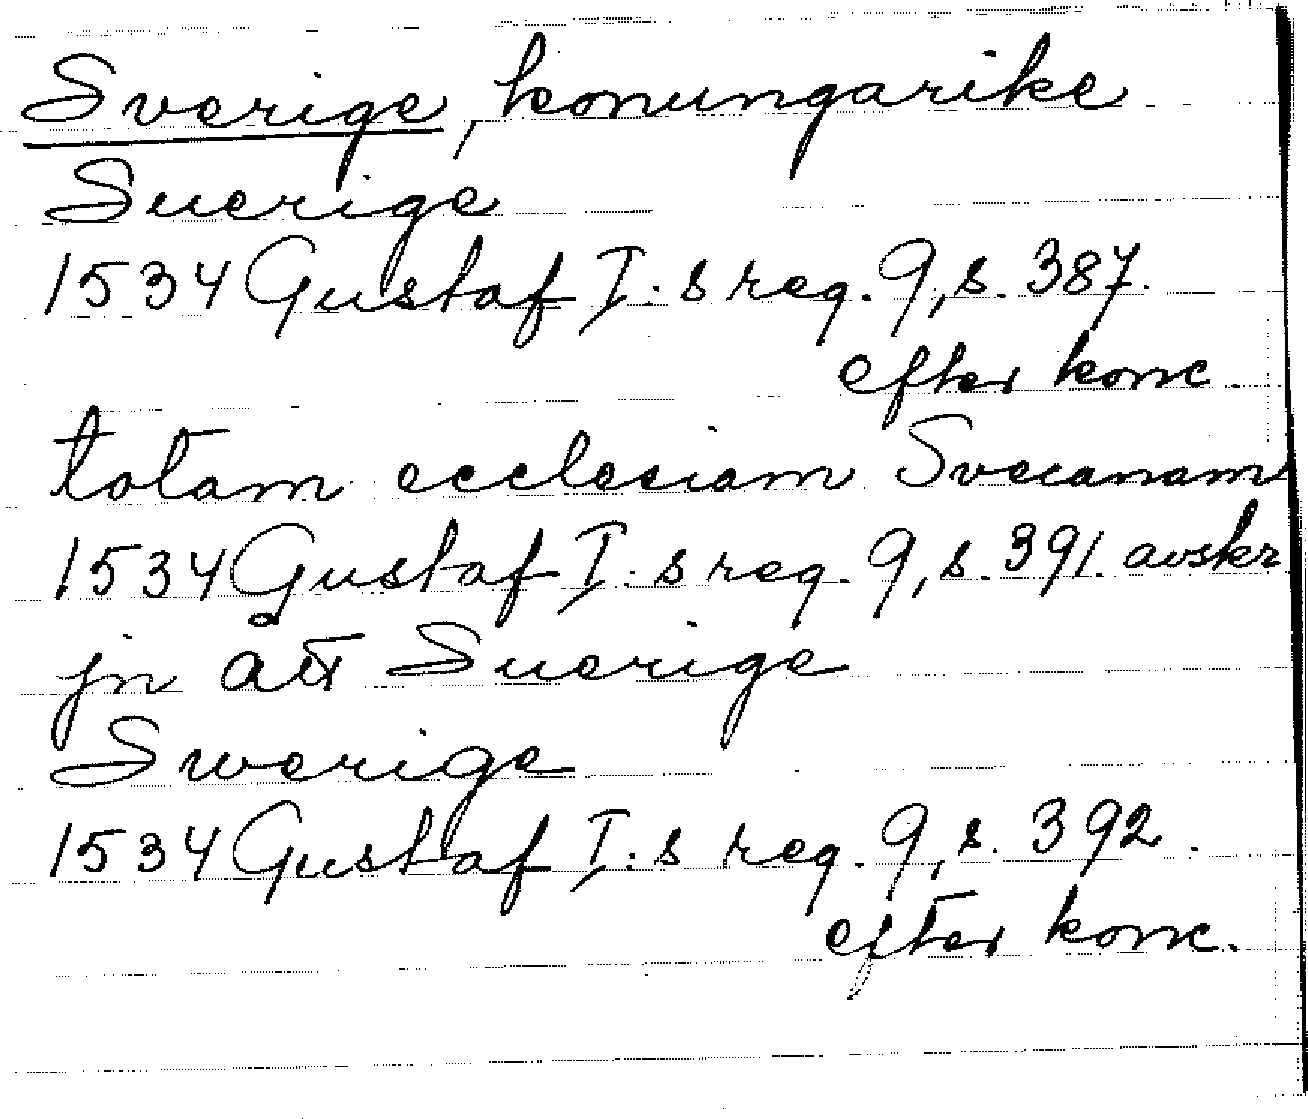 Sverige, konungarike
Suerige
1534 Gustaf I.s reg. 9, s. 387.
efter konc.
totam ecclesiam Svecanam
1534 Gustaf I.s reg. 9, s. 391. avskr
jn att Suerige
Swerige
1534 Gustaf I.s reg. 9, s. 392.
efter konc.